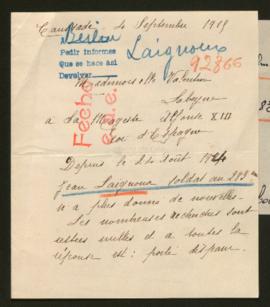 4 Septembre 1918
Berlin
Pedir informes
Que se hace aní
Devolver
Laignoux
92866
Fecho
Mademoiselle Valentine
a Sa Majesté Alfonse XIII
Roi d'Espagne
Depuis le 24 Août 1914
Jean Laignoux soldat au 283me
n'a plus donné de nouvelles.
Les nombreuses recherches sont
restées nulles et a toutes la
réponse est : porté disparu.